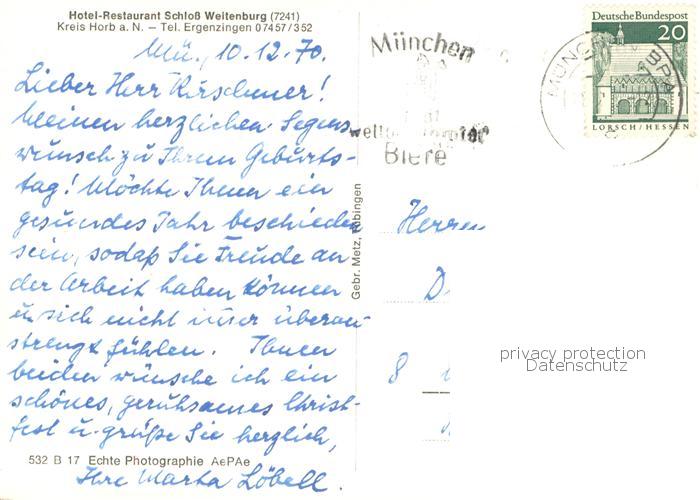 Hotel-Restaurant Schloß Weitenburg (7241)
Kreis Horb a. N. – Tel. Ergenzingen 07457/352
Mü., 10.12.70.
Lieber Herr Kirschner!
Meinen herzlichen Segens
wunsch zu Ihrem Geburts-
tag! Möchte Ihnen ein
gesundes Jahr beschieden
sein, sodaß Sie Freude an
der Arbeit haben können
u. sich nicht immer überan
strengt fühlen. Ihnen
beiden wünsche ich ein
schönes, geruhsames Christ-
fest u. grüße Sie herzlich,
Ihre Marta Löbell.
532 B 17 Echte Photographie AePAe
Gebr. Metz, Tübingen
München
Biere
Deutsche Bundespost
20
LORSCH/HESSEN
MÜNCHEN BPA
Herrn
D
8
privacy protection
Datenschutz